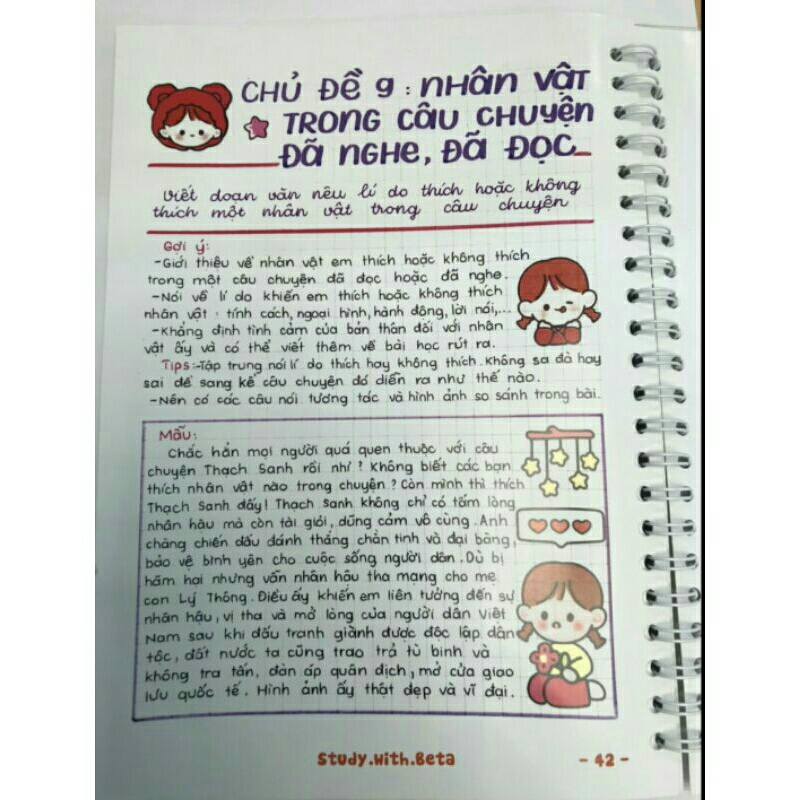 CHỦ ĐỀ 9: NHÂN VẬT
TRONG CÂU CHUYỆN
ĐÃ NGHE, ĐÃ ĐỌC
Viết đoạn văn nêu lí do thích hoặc không
thích một nhân vật trong câu chuyện
Gợi ý:
-Giới thiệu về nhân vật em thích hoặc không thích
trong một câu chuyện đã đọc hoặc đã nghe.
-Nói về lí do khiến em thích hoặc không thích
nhân vật: tính cách, ngoại hình, hành động, lời nói,...
-Khẳng định tình cảm của bản thân đối với nhân
vật ấy và có thể viết thêm về bài học rút ra.
Tips:-Tập trung nói lí do thích hay không thích. Không sa đà hay
sai đề sang kể câu chuyện đó diễn ra như thế nào.
-Nên có các câu nói tương tác và hình ảnh so sánh trong bài.
Mẫu:
Chắc hẳn mọi người quá quen thuộc với câu
chuyện Thạch Sanh rồi nhỉ? Không biết các bạn
thích nhân vật nào trong chuyện? Còn mình thì thích
Thạch Sanh đấy! Thạch Sanh không chỉ có tấm lòng
nhân hậu mà còn tài giỏi, dũng cảm vô cùng. Anh
chàng chiến đấu đánh thắng chằn tinh và đại bàng,
bảo vệ bình yên cho cuộc sống người dân. Dù bị
hãm hại nhưng vẫn nhân hậu tha mạng cho mẹ
con Lý Thông. Điều ấy khiến em liên tưởng đến sự
nhân hậu, vị tha và mở lòng của người dân Việt
Nam sau khi đấu tranh giành được độc lập dân
tộc, đất nước ta cũng trao trả tù binh và
không tra tấn, đàn áp quân địch, mở cửa giao
lưu quốc tế. Hình ảnh ấy thật đẹp và vĩ đại.
Study.With.Beta
- 42 -